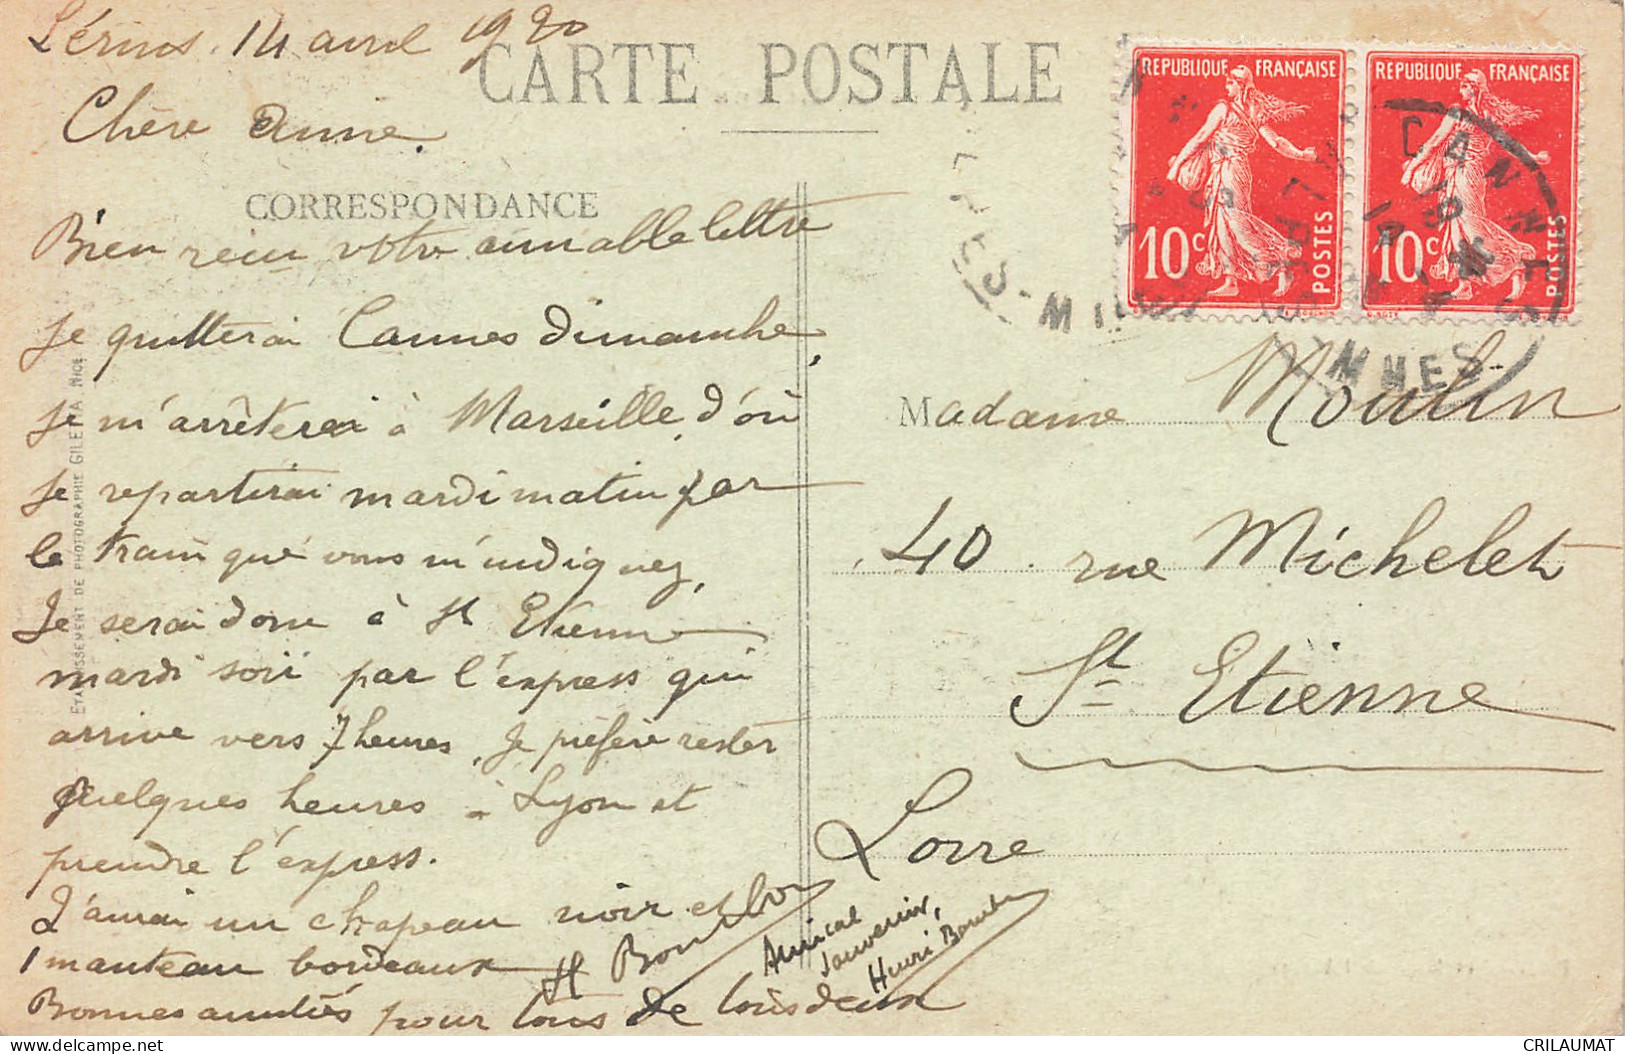 Lérins. 14 avril 1920
CARTE POSTALE
Chère Anne.
CORRESPONDANCE
Bien reçu votre aimable lettre
Je quitterai Cannes dimanche,
Je m'arrêterai à Marseille, d'où
Je repartirai mardi matin par
le train que vous m'indiquez,
Je serai donc à St Etienne
mardi soir par l'express qui
arrive vers 7 heures, Je préfère rester
quelques heures à Lyon et
prendre l'express.
J'aurai un chapeau noir et
1 manteau bordeaux
Bonnes amitiés pour tous de tous deux
Amical
souvenir,
Henri
ETABLISSEMENT DE PHOTOGRAPHIE GILETTA NICE
REPUBLIQUE FRANÇAISE
10c POSTES
REPUBLIQUE FRANÇAISE
10c POSTES
CANNES
Madame Moulin
40 rue Michelet
St Etienne
Loire
CRILAUMAT